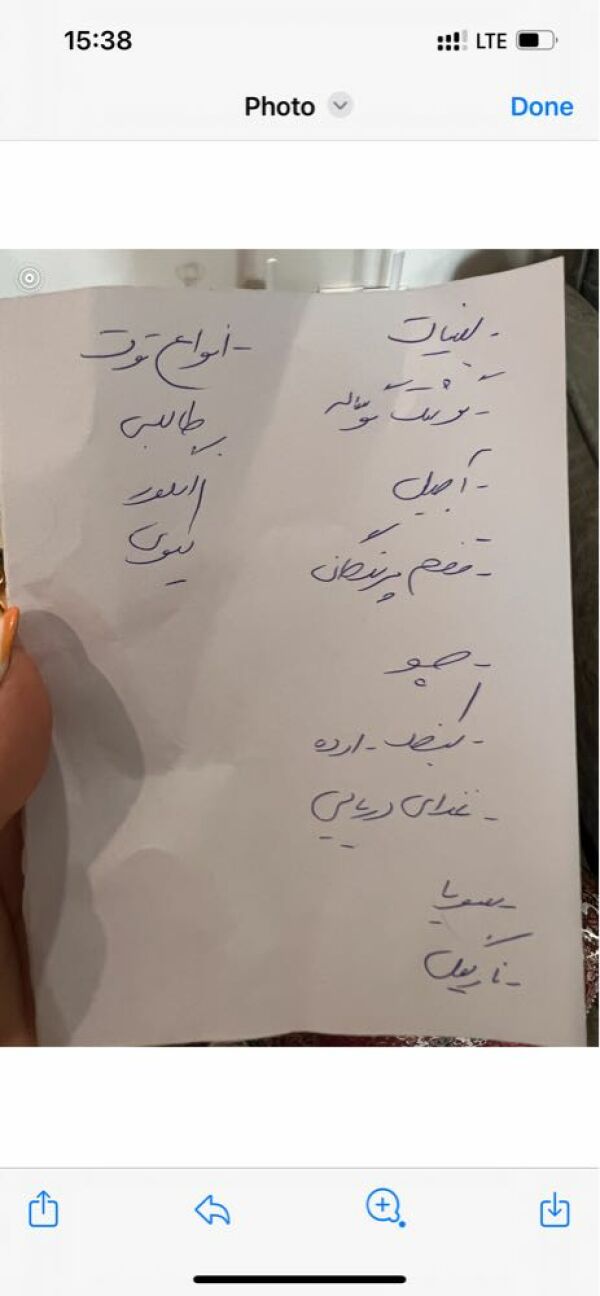 15:38
LTE
Photo
Done
- لبنیات
- گوشت گوساله
- آجیل
- تخم پرندگان
- جو
- کنجد - ارده
- غذای دریایی
- سویا
- نارگیل
- انواع توت
طالبی
انگور
کیوی